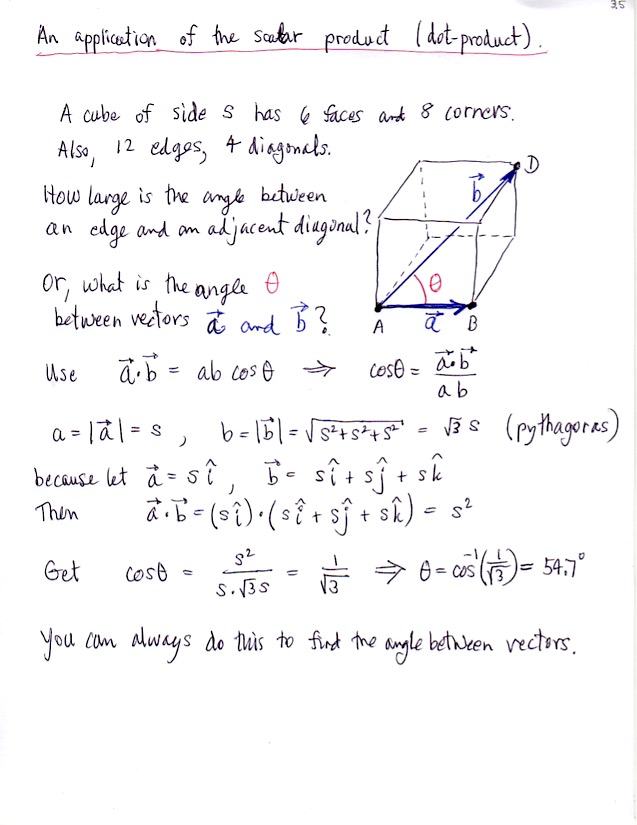 35
An application of the scalar product (dot-product).
A cube of side s has 6 faces and 8 corners.
Also, 12 edges, 4 diagonals.
How large is the angle between
an edge and an adjacent diagonal?
Or, what is the angle θ
between vectors a⃗ and b⃗?
D
b⃗
θ
A a⃗ B
Use a⃗·b⃗ = ab cosθ ⇒ cosθ = a⃗·b⃗ / ab
a = |a⃗| = s, b = |b⃗| = √(s²+s²+s²) = √3 s (pythagoras)
because let a⃗ = s î, b⃗ = s î + s ĵ + s k̂
Then a⃗·b⃗ = (s î)·(s î + s ĵ + s k̂) = s²
Get cosθ = s² / s·√3 s = 1/√3 ⇒ θ = cos⁻¹(1/√3) = 54.7°
You can always do this to find the angle between vectors.